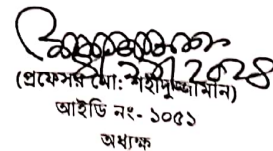 (প্রফেসর মো: শহীদুজ্জামান)
আইডি নং- ১০৫১
অধ্যক্ষ